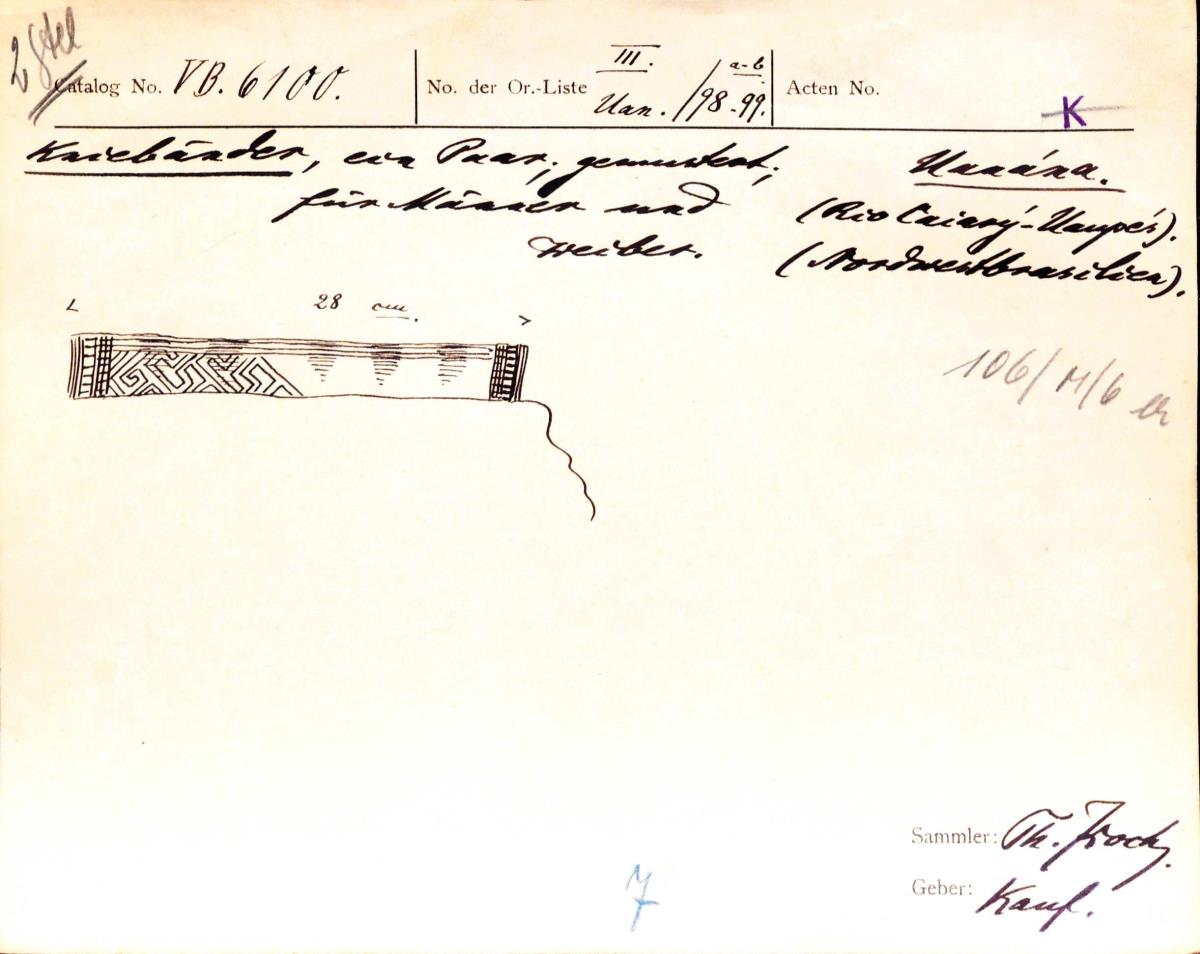 2 Stck
Catalog No. VB. 6100.
No. der Or.-Liste III. Uan. /98-99. a-b
Acten No.
K
Kniebänder, ein Paar, gemustert;
für Männer und
Weiber.
Uanána.
(Rio Caiarý-Uaupés).
(Nordwestbrasilien).
28 cm.
106/M/6
Sammler: Th. Koch.
Geber: Kauf.
7